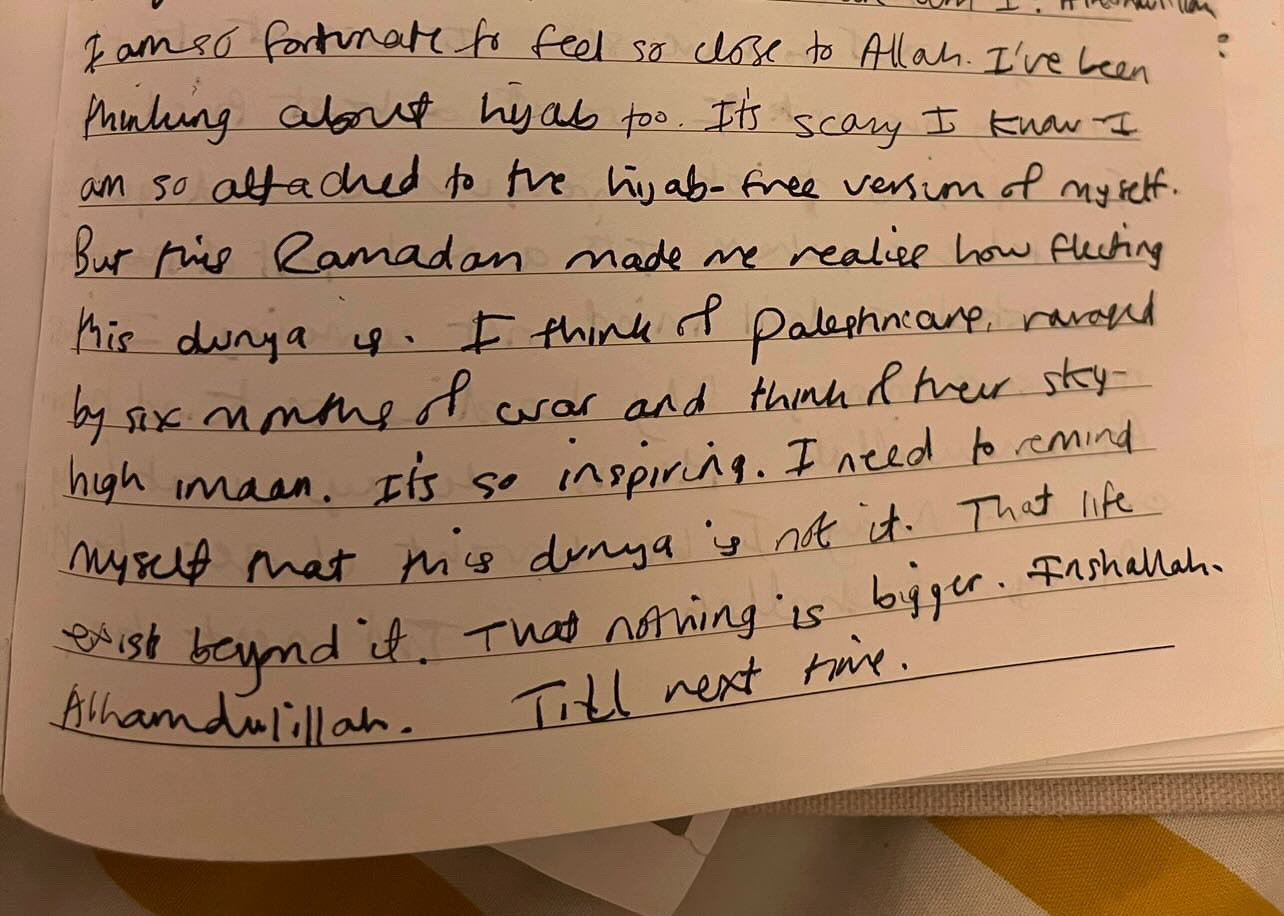 I am so fortunate to feel so close to Allah. I've been
thinking about hijab too. It's scary I know I
am so attached to the hijab-free version of myself.
But this Ramadan made me realise how fleeting
this dunya is. I think of Palestinians, ravaged
by six months of war and think of their sky-
high imaan. It's so inspiring. I need to remind
myself that this dunya is not it. That life
exist beyond it. That nothing is bigger. Inshallah.
Alhamdulillah. Till next time.